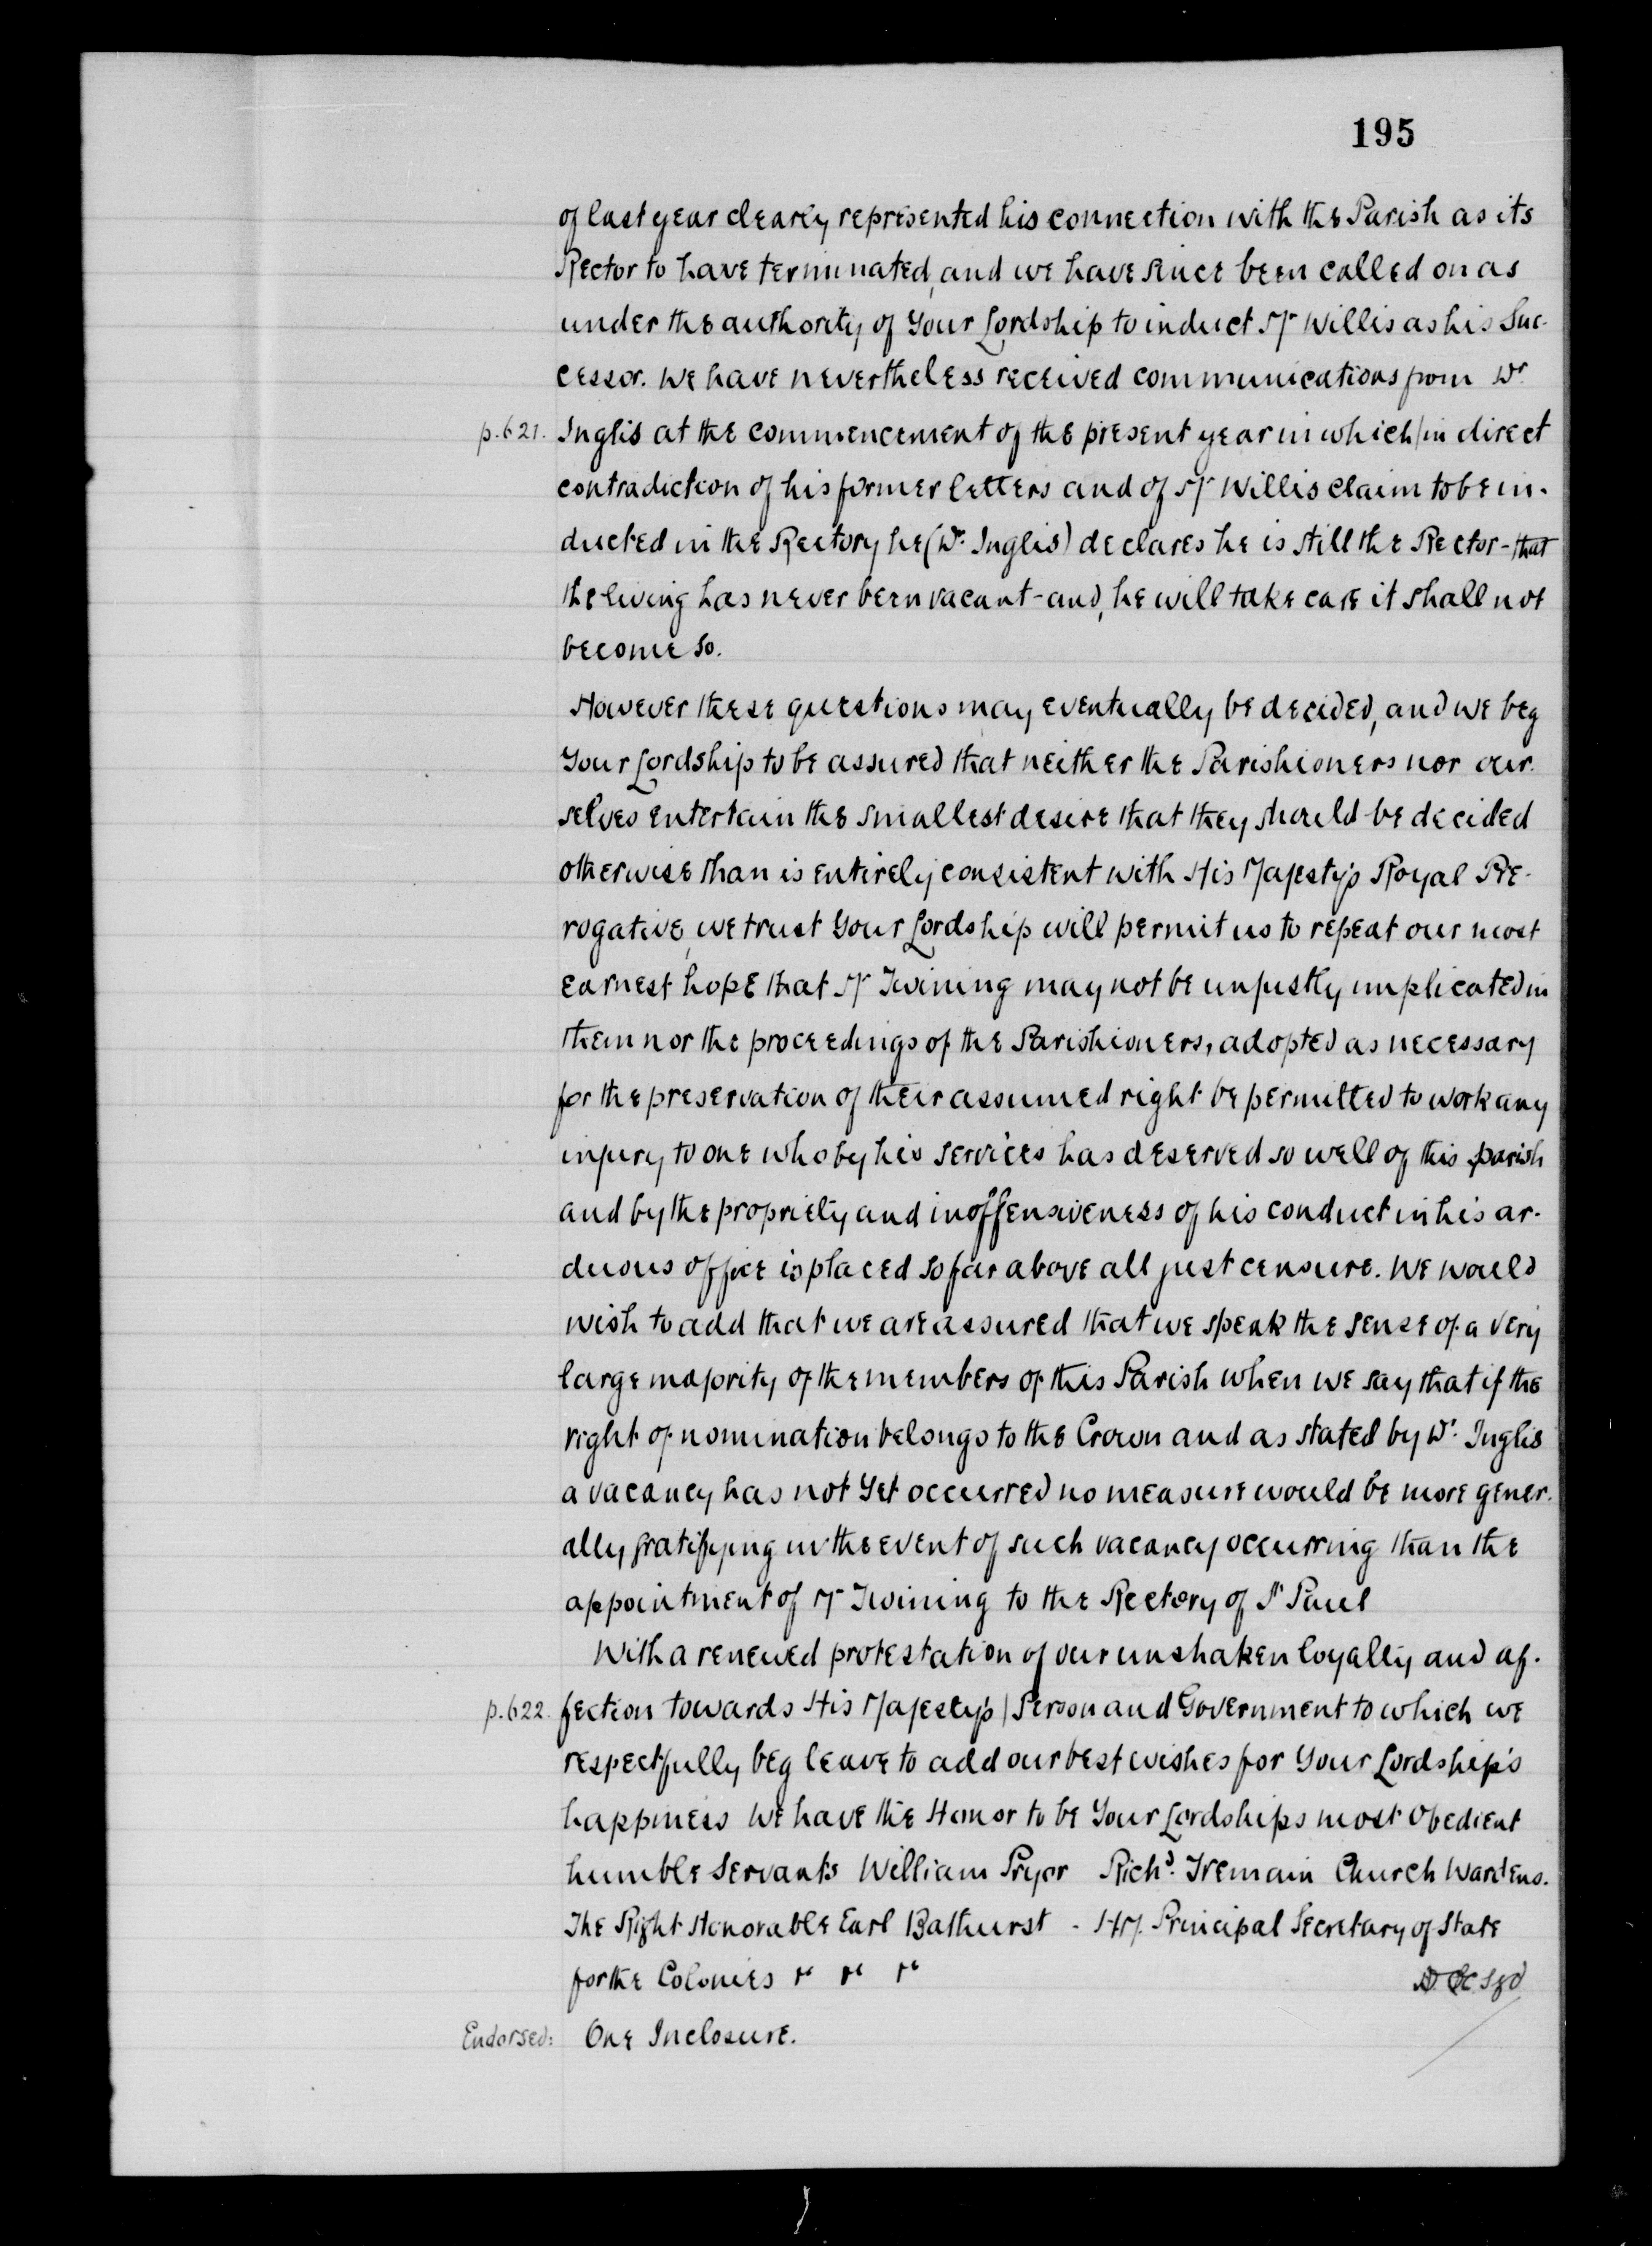 195
of last year clearly represented his connection with the Parish as its
Rector to have terminated, and we have since been called on as
under the authority of Your Lordship to induct Mr Willis as his Suc-
cessor. We have nevertheless received communications from Dr.
p.621. Inglis at the commencement of the present year in which/in direct
contradiction of his former letters and of Mr Willis claim to be in-
ducted in the Rectory he (Dr. Inglis) declares he is still the Rector - that
the living has never been vacant - and, he will take care it shall not
become so.
However these questions may eventually be decided, and we beg
Your Lordship to be assured that neither the Parishioners nor our-
selves entertain the smallest desire that they should be decided
otherwise than is entirely consistent with His Majesty's Royal Pre-
rogative, we trust Your Lordship will permit us to repeat our most
earnest hope that Mr Twining may not be unjustly implicated in
them nor the proceedings of the Parishioners, adopted as necessary
for the preservation of their assumed right be permitted to work any
injury to one who by his services has deserved so well of this parish
and by the propriety and inoffensiveness of his conduct in his ar-
duous office is placed so far above all just censure. We would
wish to add that we are assured that we speak the sense of a very
large majority of the members of this Parish when we say that if the
right of nomination belongs to the Crown and as stated by Dr. Inglis
a vacancy has not yet occurred no measure would be more gener-
ally gratifying in the event of such vacancy occurring than the
appointment of Mr Twining to the Rectory of St Paul
With a renewed protestation of our unshaken loyalty and af-
p.622. fection towards His Majesty's / Person and Government to which we
respectfully beg leave to add our best wishes for Your Lordship's
happiness We have the Honor to be Your Lordships most Obedient
humble Servants William Pryor Richd. Tremain Church Wardens.
The Right Honorable Earl Bathurst - HM. Principal Secretary of State
for the Colonies &c &c &c
Endorsed: One Inclosure.